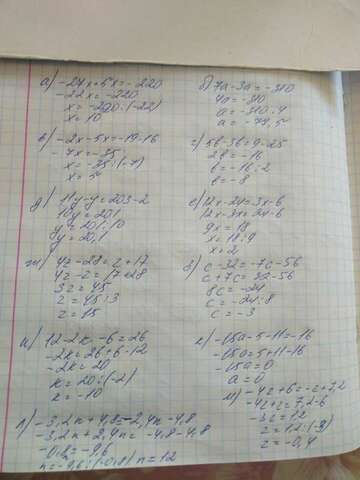 а) -27x+5x=-220
-22x=-220
x=-220:(-22)
x=10
б) 7a-3a=-310
4a=-310
a=-310:4
a=-77,5
в) -2x-5x=-19-16
-7x=-35
x=-35:(-7)
x=5
г) 5b-3b=9-25
2b=-16
b=-16:2
b=-8
д) 11y-y=203-2
10y=201
y=201:10
y=20,1
е) 12x-24=3x-6
12x-3x=24-6
9x=18
x=18:9
x=2
ж) 4z-28=z+17
4z-z=17+28
3z=45
z=45:3
z=15
з) c-32=-7c-56
c+7c=32-56
8c=-24
c=-24:8
c=-3
и) 12-2k-6=26
-2k=26+6-12
-2k=20
k=20:(-2)
k=-10
к) -15a-5-11=-16
-15a=5+11-16
-15a=0
a=0
л) -3,2n+4,8=-2,4n-4,8
-3,2n+2,4n=-4,8-4,8
-0,8=-9,6
n=-9,6:(-0,8) n=12
м) -4z+6=-z+7,2
-4z+z=7,2-6
-3z=12
z=12:(-3)
z=-0,4